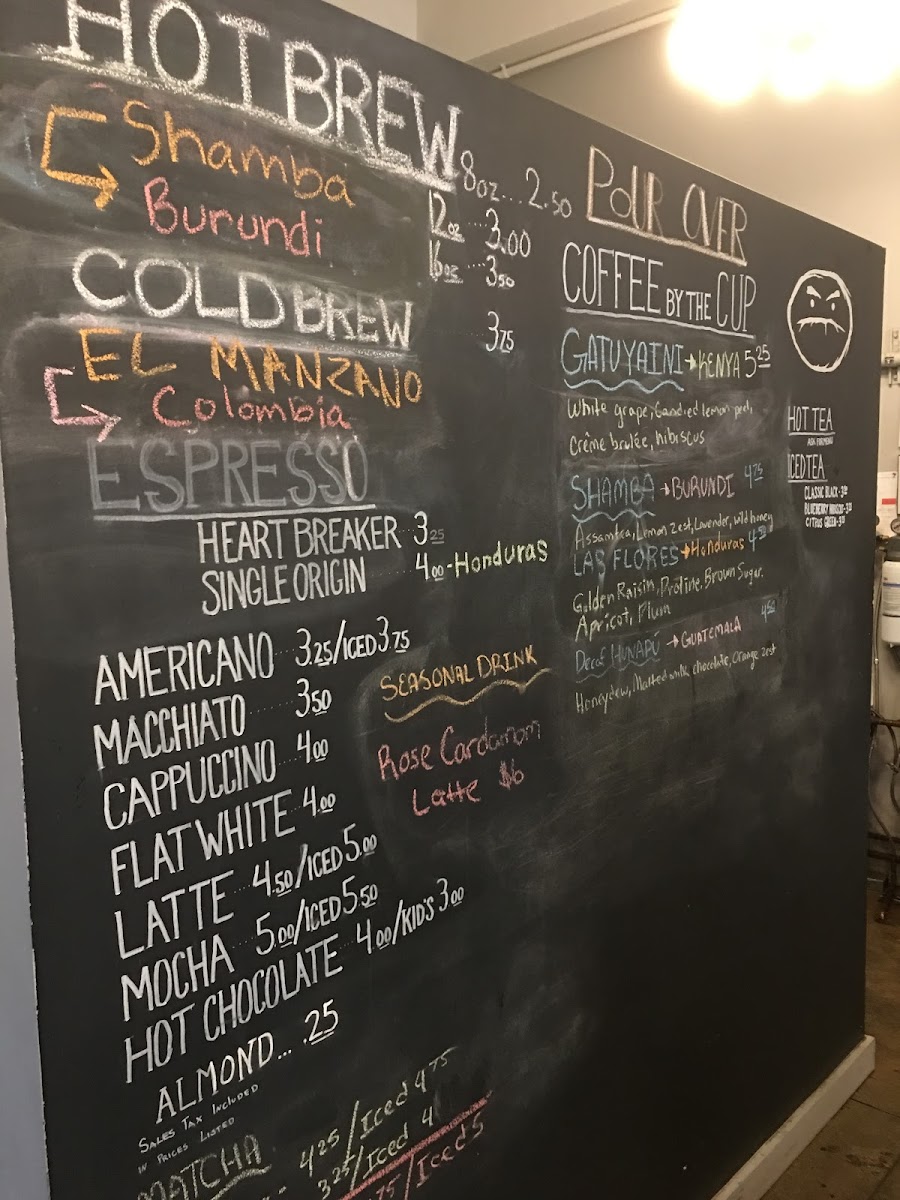 HOT BREW
Shamba
Burundi
8oz... 2.50
12oz ... 3.00
16oz ... 3.50
COLD BREW 3.75
EL MANZANO
Colombia
ESPRESSO
HEARTBREAKER 3.25
SINGLE ORIGIN 4.00 - Honduras
AMERICANO 3.25/ICED 3.75
MACCHIATO 3.50
CAPPUCCINO 4.00
FLAT WHITE 4.00
LATTE 4.50/ICED 5.00
MOCHA 5.00/ICED 5.50
HOT CHOCOLATE 4.00/KID'S 3.00
ALMOND... .25
SALES TAX INCLUDED
IN PRICES LISTED
MATCHA
4.25/Iced 4.75
3.25/Iced 4
75/Iced 5
SEASONAL DRINK
Rose Cardamom
Latte $6
POUR OVER
COFFEE BY THE CUP
GATUYAINI → KENYA 5.25
White grape, Candied lemon peel,
Crême brulée, hibiscus
SHAMBA → BURUNDI 4.75
Assam tea, Lemon zest, Lavender, wild honey
LAS FLORES → Honduras 4.50
Golden Raisin, Praline, Brown Sugar.
Apricot, Plum
Decaf HUNAPÚ → GUATEMALA 4.50
Honeydew, Malted milk chocolate, Orange zest
HOT TEA
ICED TEA
CLASSIC BLACK
BLUEBERRY HIBISCUS
CITRUS GREEN